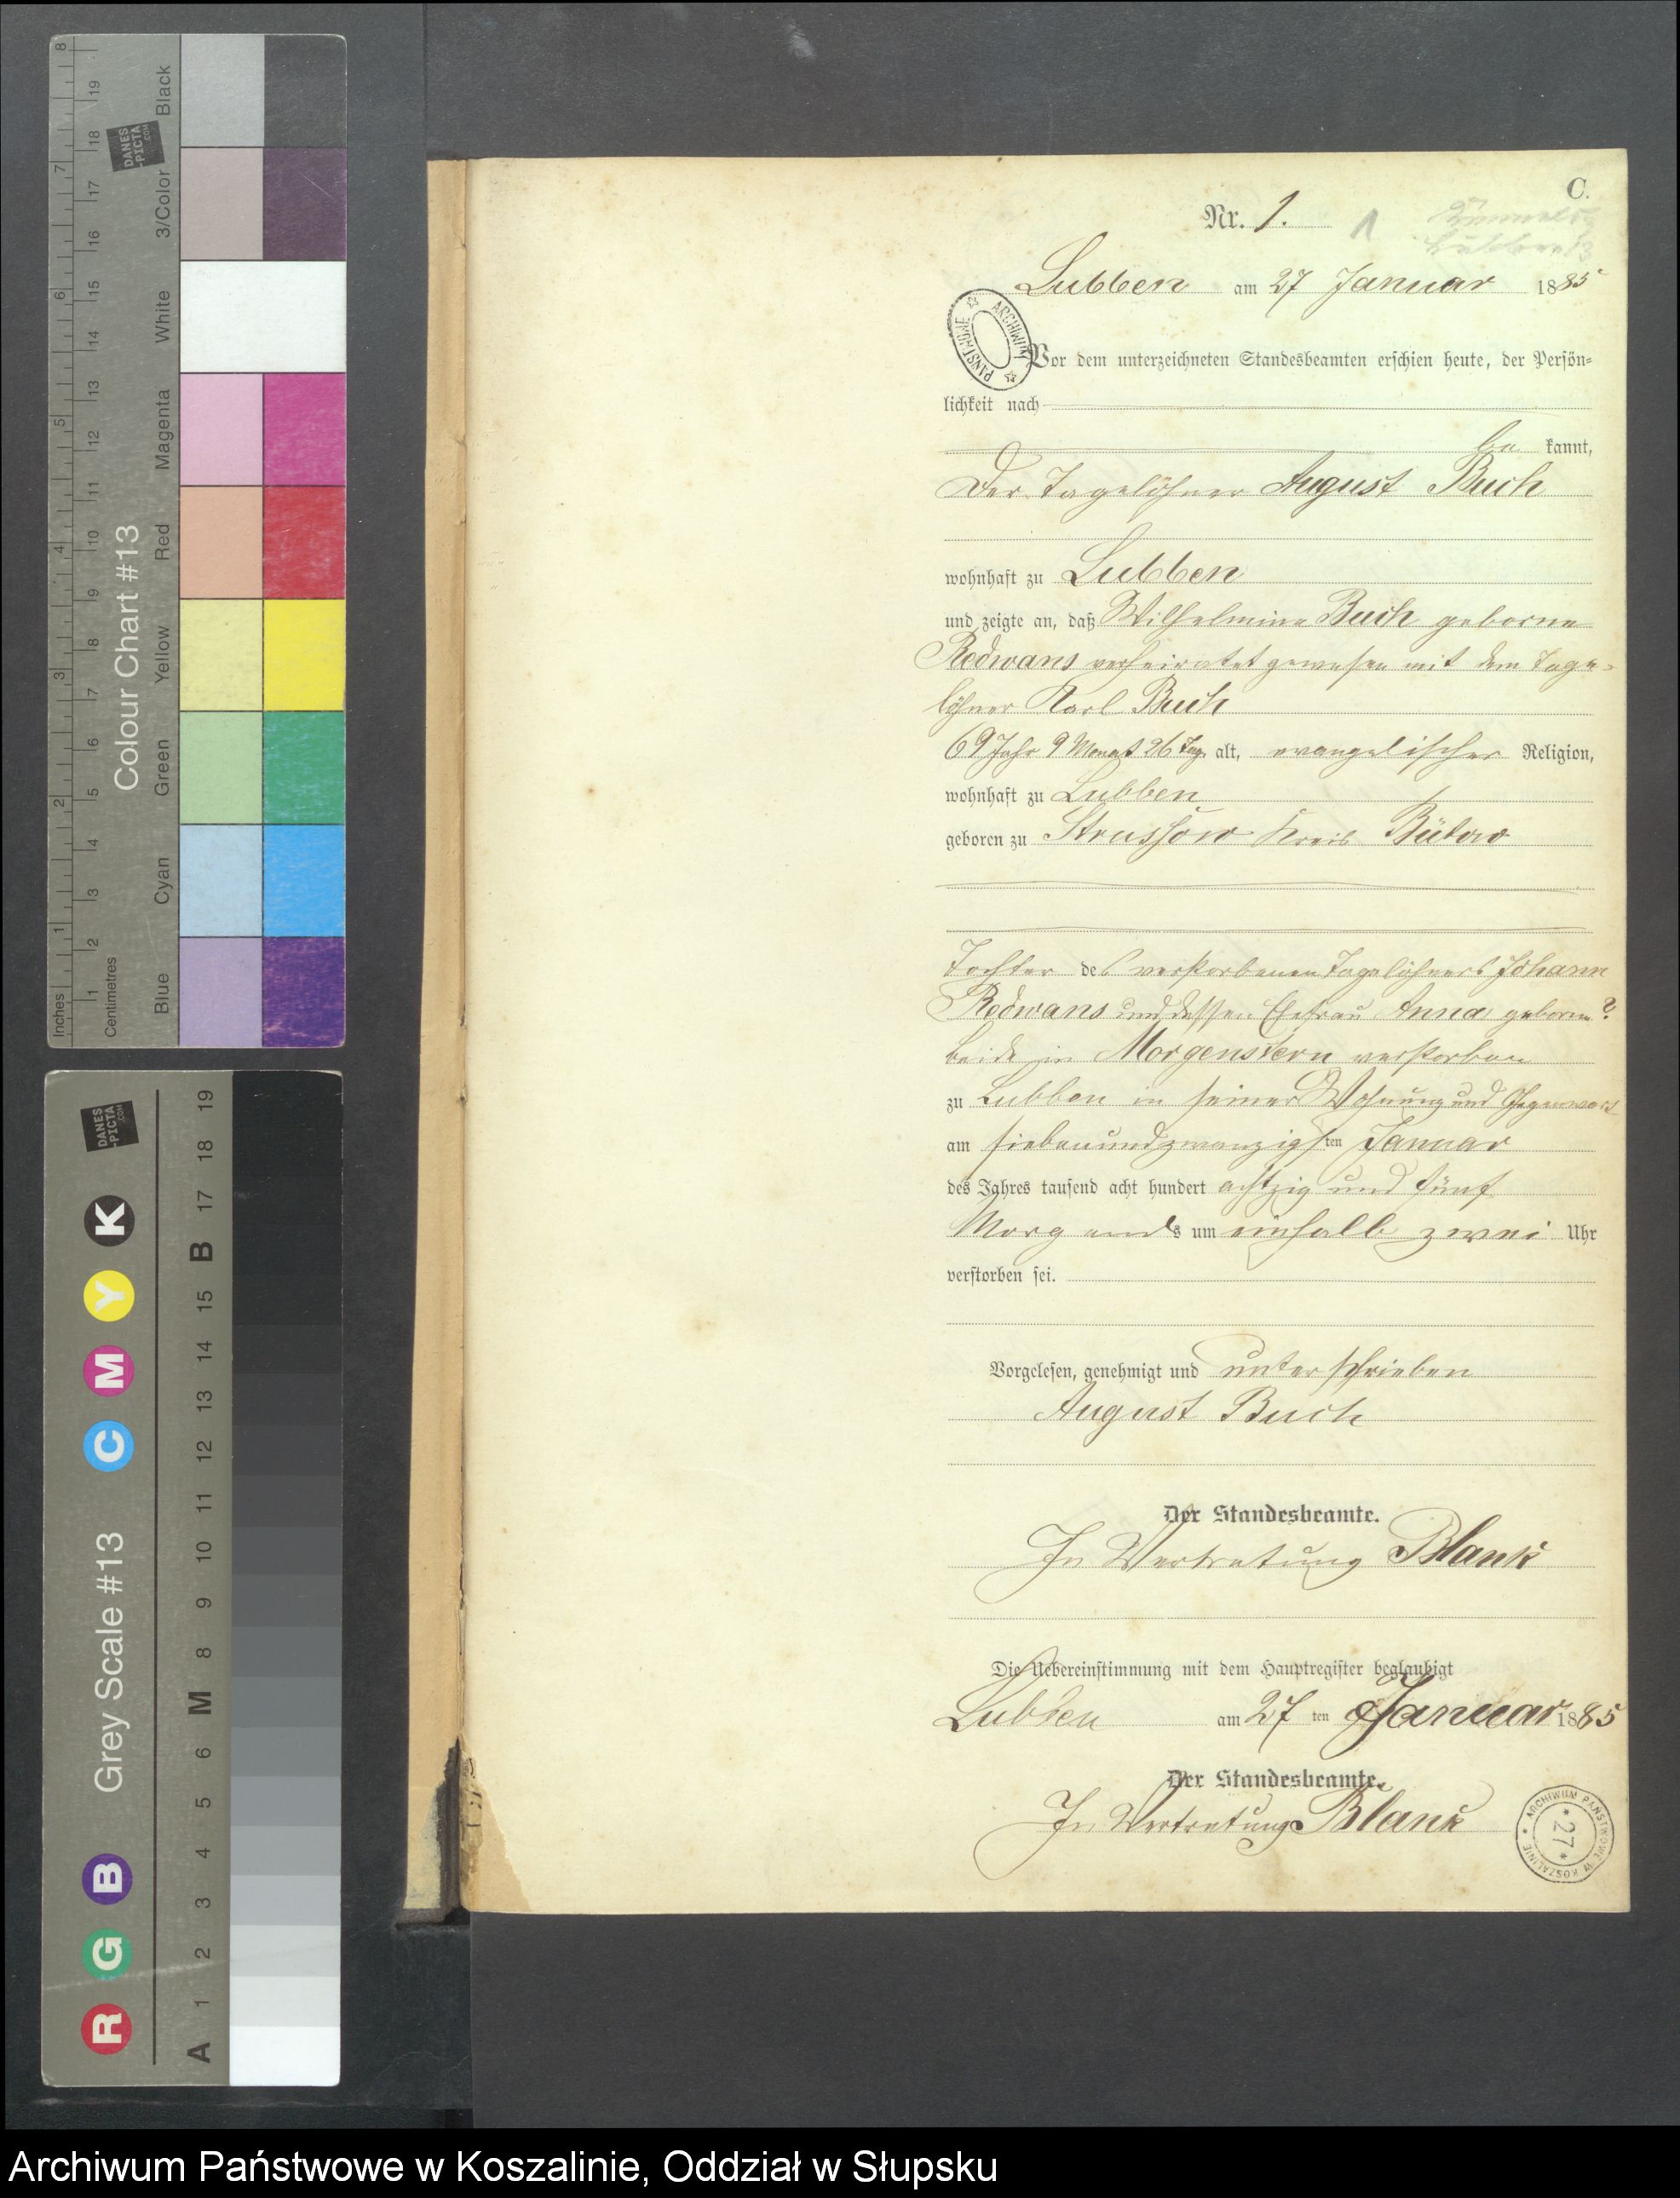 C.
Nr. 1.
1
Lubben am 27 Januar 1885
ARCHIWUM PAŃSTWOWE
Vor dem unterzeichneten Standesbeamten erschien heute, der Persön-
lichkeit nach
be kannt,
Der Tagelöhner August Buch
wohnhaft zu Lubben
und zeigte an, daß Wilhelmine Buch geborne
Redwans verheiratet gewesen mit dem Tage-
löhner Karl Buch
69 Jahr 9 Monat 26 Tage alt, evangelischer Religion,
wohnhaft zu Lubben
geboren zu Strussow Kreis Bütow
Tochter des verstorbenen Tagelöhners Johann
Redwans und dessen Ehefrau Anna geborne ?
beide in Morgenstern verstorben
zu Lubben in seiner Wohnung und Gegenwart
am siebenundzwanzigsten Januar
des Jahres tausend acht hundert achtzig und fünf
Morgends um einhalb zwei Uhr
verstorben sei.
Vorgelesen, genehmigt und unterschrieben
August Buch
Der Standesbeamte.
In Vertretung Blank
Die Uebereinstimmung mit dem Hauptregister beglaubigt
Lubben am 27 ten Januar 1885
Der Standesbeamte.
In Vertretung Blank
ARCHIWUM PAŃSTWOWE W KOSZALINIE
* 27 *
Colour Chart #13
DANES-PICTA.COM
Inches 1 2 3 4 5 6 7 8
Centimetres 1 2 3 4 5 6 7 8 9 10 11 12 13 14 15 16 17 18 19
Blue Cyan Green Yellow Red Magenta White 3/Color Black
Grey Scale #13
DANES-PICTA.COM
R G B C M Y K
A 1 2 3 4 5 6 M 8 9 10 11 12 13 14 15 B 17 18 19
Archiwum Państwowe w Koszalinie, Oddział w Słupsku